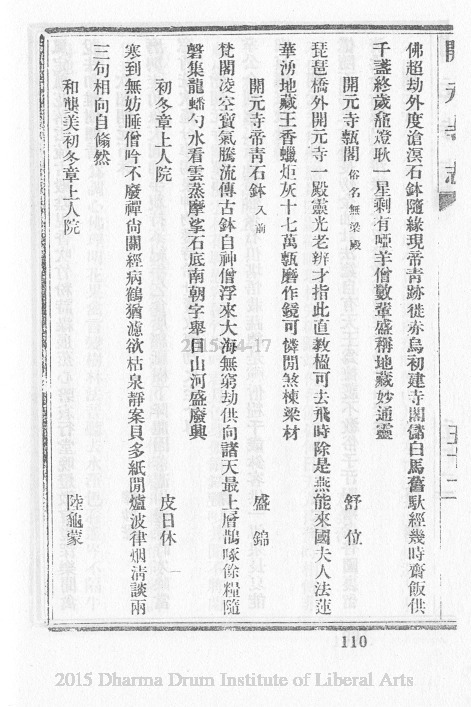 佛超劫外度滄溟石鉢隨緣現帝青跡徙赤烏初建寺閣儲白馬舊馱經幾時齋飯供
千盞終歲龕燈耿一星剩有啞羊僧數輩盛稱地藏妙通靈
開元寺甎閣 俗名無梁殿 舒位
琵琶橋外開元寺一殿靈光老辨才指此直教楹可去飛時除是燕能來國夫人法蓮
華湧地藏王香蠟炬灰十七萬甎磨作鏡可憐閒煞棟梁材
開元寺帝青石鉢 入前 盛錦
梵閣凌空寶氣騰流傳古鉢自神僧浮來大海無窮劫供向諸天最上層鵲啄餘糧隨
磬集龍蟠勺水看雲蒸摩挲石底南朝字舉目山河盛廢興
初冬章上人院 皮日休
寒到無妨睡僧吟不廢禪尚關經病鶴猶濾欲枯泉靜案貝多紙閒爐波律烟清談兩
三句相向自翛然
和龔美初冬章上人院 陸龜蒙
110
2015-04-17
2015 Dharma Drum Institute of Liberal Arts